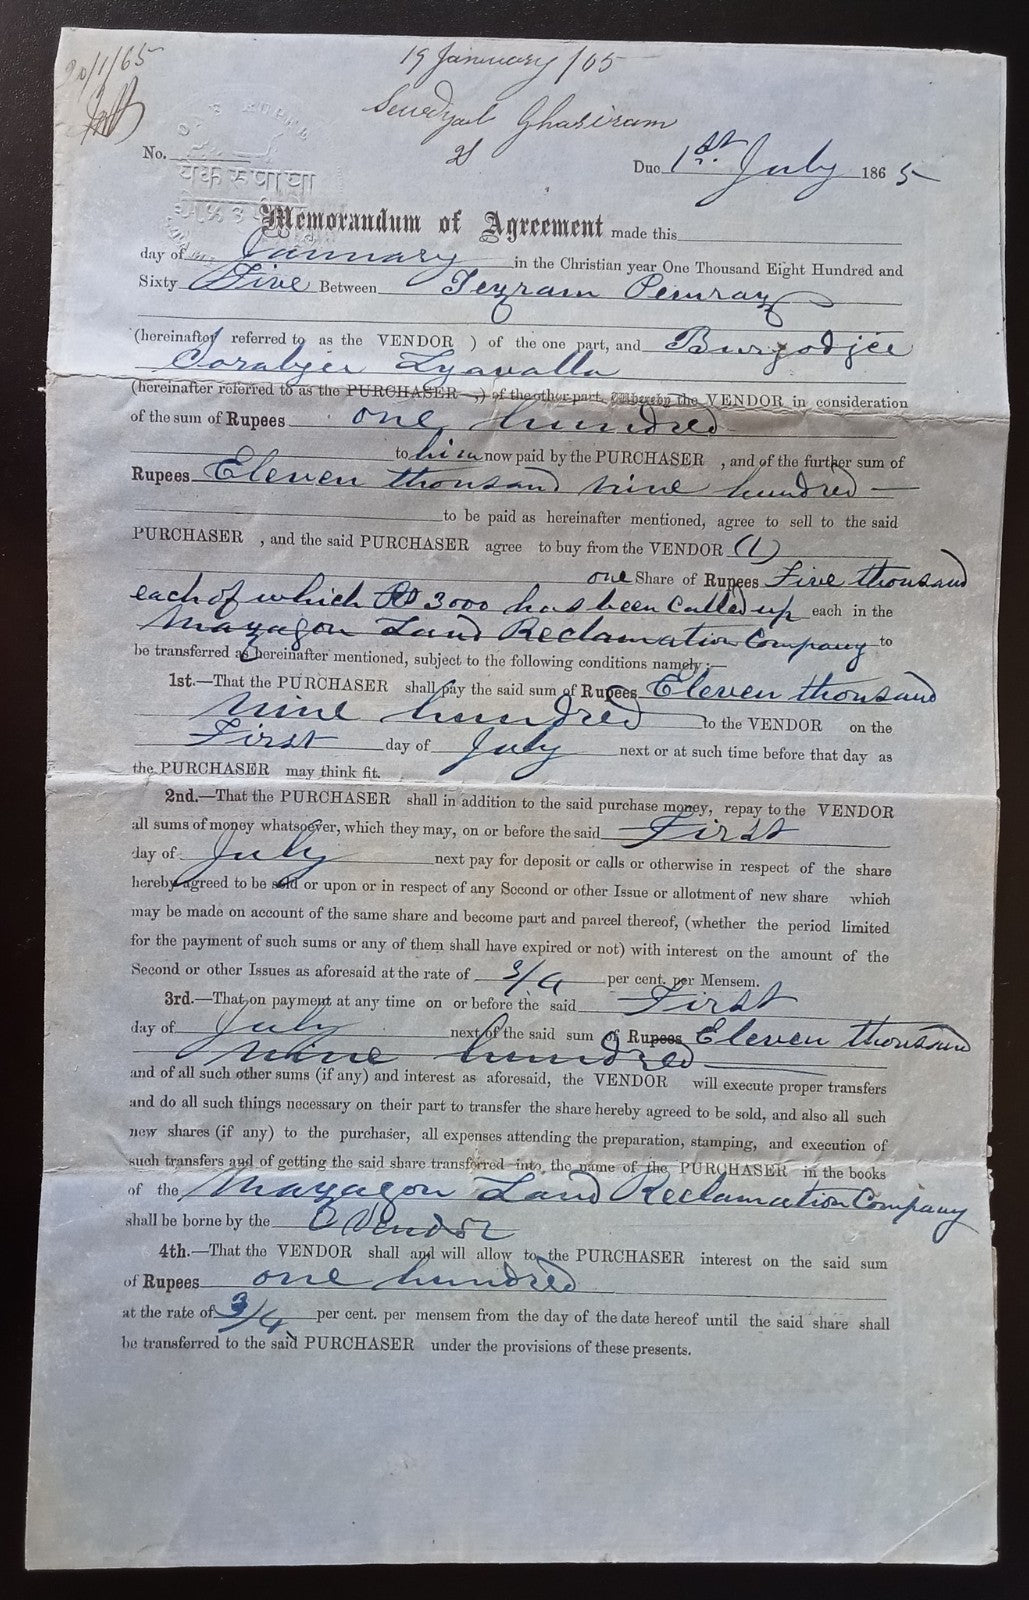 20/1/65
19 January /65
Sewdyal Ghasiram
ONE RUPEE
एक रुपाया
No.
Due 1st. July 1865
Memorandum of Agreement made this
day of January in the Christian year One Thousand Eight Hundred and
Sixty Five Between Tezram Pemraz
(hereinafter referred to as the VENDOR ) of the one part, and Burjodjee
Sorabjee Lyavalla
(hereinafter referred to as the PURCHASER ,) of the other part, Whereby the VENDOR in consideration
of the sum of Rupees one hundred
to him now paid by the PURCHASER , and of the further sum of
Rupees Eleven thousand nine hundred
to be paid as hereinafter mentioned, agree to sell to the said
PURCHASER , and the said PURCHASER agree to buy from the VENDOR (1)
one Share of Rupees Five thousand
each of which Rs 3000 has been Called up each in the
Mazagon Land Reclamation Company to
be transferred as hereinafter mentioned, subject to the following conditions namely :—
1st.—That the PURCHASER shall pay the said sum of Rupees Eleven thousand
nine hundred to the VENDOR on the
First day of July next or at such time before that day as
the PURCHASER may think fit.
2nd.—That the PURCHASER shall in addition to the said purchase money, repay to the VENDOR
all sums of money whatsoever, which they may, on or before the said First
day of July next pay for deposit or calls or otherwise in respect of the share
hereby agreed to be sold or upon or in respect of any Second or other Issue or allotment of new share which
may be made on account of the same share and become part and parcel thereof, (whether the period limited
for the payment of such sums or any of them shall have expired or not) with interest on the amount of the
Second or other Issues as aforesaid at the rate of 3/4 per cent. per Mensem.
3rd.—That on payment at any time on or before the said First
day of July next of the said sum of Rupees Eleven thousand
nine hundred
and of all such other sums (if any) and interest as aforesaid, the VENDOR will execute proper transfers
and do all such things necessary on their part to transfer the share hereby agreed to be sold, and also all such
new shares (if any) to the purchaser, all expenses attending the preparation, stamping, and execution of
such transfers and of getting the said share transferred into the name of the PURCHASER in the books
of the Mazagon Land Reclamation Company
shall be borne by the Vendor
4th.—That the VENDOR shall and will allow to the PURCHASER interest on the said sum
of Rupees one hundred
at the rate of 3/4 per cent. per mensem from the day of the date hereof until the said share shall
be transferred to the said PURCHASER under the provisions of these presents.